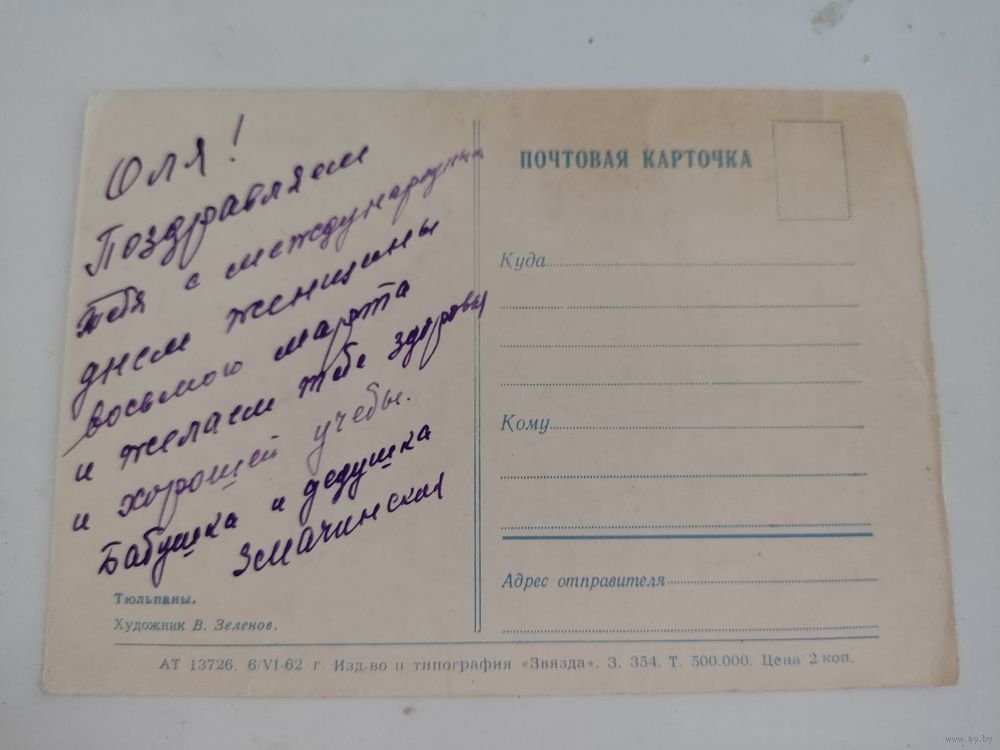 Оля!
Поздравляем
тебя с международным
днем женщины
восьмого марта
и желаем тебе здоровья
и хорошей учебы.
Бабушка и дедушка
Змачинская
Тюльпаны.
Художник В. Зеленов.
ПОЧТОВАЯ КАРТОЧКА
Куда
Кому
Адрес отправителя
АТ 13726. 6/VI-62 г. Изд-во и типография «Звязда». З. 354. Т. 500.000. Цена 2 коп.
www.ay.by